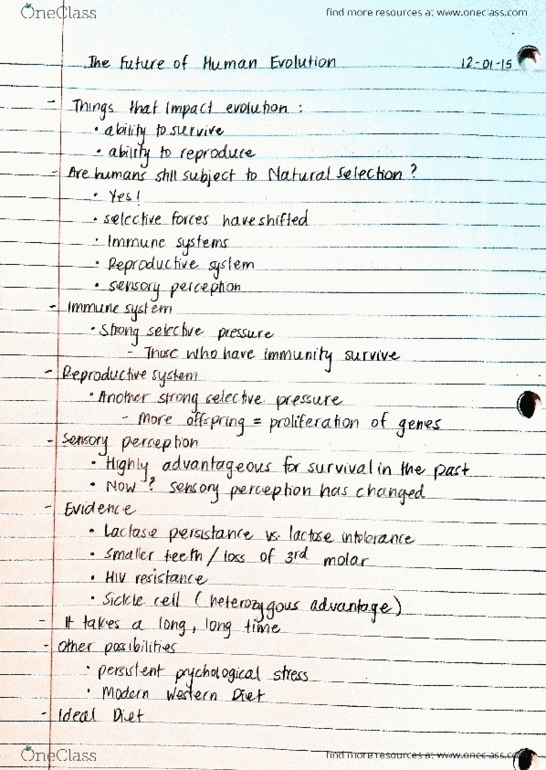 OneClass find more resources at www.oneclass.com
The Future of Human Evolution 12-01-15
- Things that impact evolution :
• ability to survive
• ability to reproduce
- Are humans still subject to Natural Selection ?
• Yes!
• selective forces have shifted
• Immune systems
• Reproductive system
• sensory perception
- Immune system
• Strong selective pressure
- Those who have immunity survive
- Reproductive system
• Another strong selective pressure
- More offspring = proliferation of genes
- Sensory perception
• Highly advantageous for survival in the past
• Now ? sensory perception has changed
- Evidence
• Lactase persistance vs. lactose intolerance
• smaller teeth / loss of 3rd molar
• HIV resistance
• Sickle cell ( heterozygous advantage )
- It takes a long, long time
- Other possibilities
• persistent pychological stress
• Modern Western Diet
- Ideal Diet
OneClass find more resources at www.oneclass.com